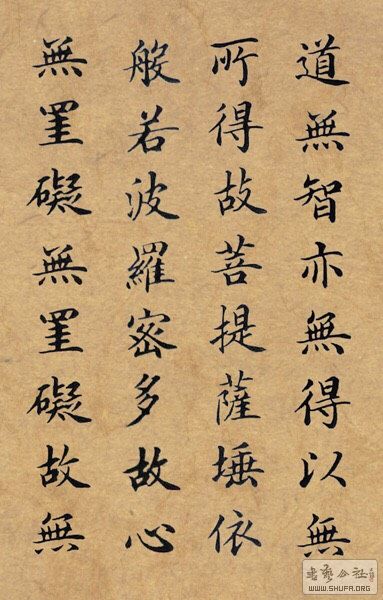 道無智亦無得以無
所得故菩提薩埵依
般若波羅密多故心
無罣礙無罣礙故無
书艺公社
WWW.SHUFA.ORG